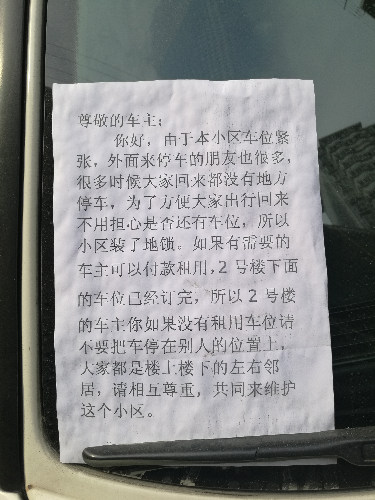 尊敬的车主:
你好，由于本小区车位紧
张，外面来停车的朋友也很多，
很多时候大家回来都没有地方
停车，为了方便大家出行回来
不用担心是否还有车位，所以
小区装了地锁。如果有需要的
车主可以付款租用，2 号楼下面
的车位已经订完，所以 2 号楼
的车主你如果没有租用车位请
不要把车停在别人的位置上，
大家都是楼上楼下的左右邻
居，请相互尊重，共同来维护
这个小区。